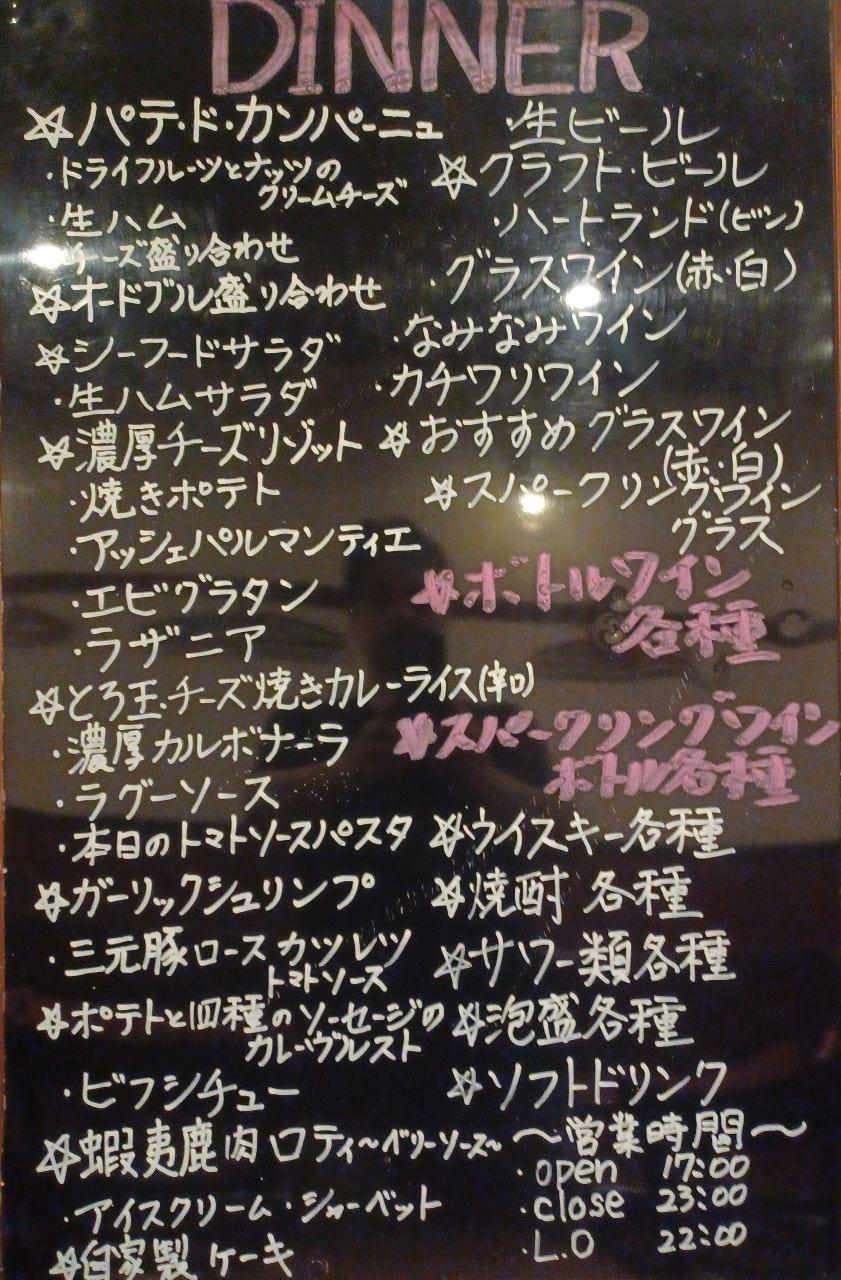 DINNER
☆パテ・ド・カンパーニュ
・ドライフルーツとナッツの
クリームチーズ
・生ハム
チーズ盛り合わせ
☆オードブル盛り合わせ
☆シーフードサラダ
・生ハムサラダ
☆濃厚チーズリゾット
・焼きポテト
・アッシェパルマンティエ
・エビグラタン
・ラザニア
☆とろ玉・チーズ焼きカレーライス(辛口)
・濃厚カルボナーラ
・ラグーソース
・本日のトマトソースパスタ
☆ガーリックシュリンプ
・三元豚ロースカツレツ
トマトソース
☆ポテトと四種のソーセージの
カレーヴルスト
・ビフシチュー
☆蝦夷鹿肉ロティ〜ベリーソース〜
・アイスクリーム・シャーベット
☆自家製ケーキ
・生ビール
☆クラフト・ビール
・ハートランド(ビン)
・グラスワイン(赤・白)
・なみなみワイン
・カチワリワイン
☆おすすめグラスワイン
(赤・白)
☆スパークリングワイン
グラス
☆ボトルワイン
各種
☆スパークリングワイン
ボトル各種
☆ウイスキー各種
☆焼酎 各種
☆サワー類各種
☆泡盛各種
☆ソフトドリンク
〜営業時間〜
・open 17:00
・close 23:00
・L.O 22:00